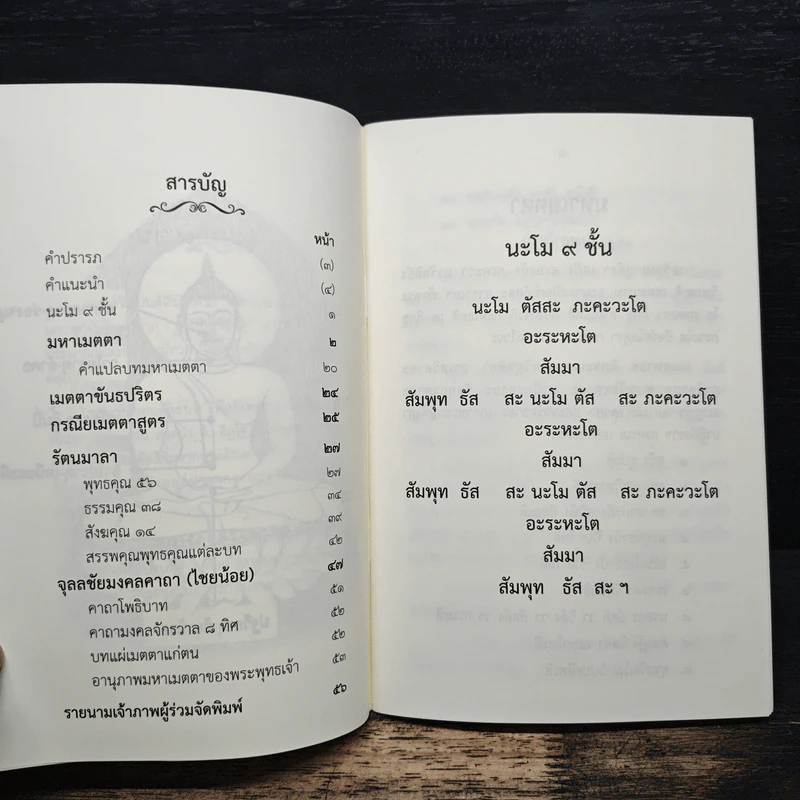 สารบัญ
หน้า
คำปรารภ (๓)
คำแนะนำ (๔)
นะโม ๙ ชั้น ๑
มหาเมตตา ๒
คำแปลบทมหาเมตตา ๒๐
เมตตาขันธปริตร ๒๔
กรณียเมตตาสูตร ๒๕
รัตนมาลา ๒๗
พุทธคุณ ๕๖ ๒๗
ธรรมคุณ ๓๘ ๓๔
สังฆคุณ ๑๔ ๓๙
สรรพคุณพุทธคุณแต่ละบท ๔๒
จุลลชัยมงคลคาถา (ไชยน้อย) ๔๗
คาถาโพธิบาท ๕๑
คาถามงคลจักรวาล ๘ ทิศ ๕๒
บทแผ่เมตตาแก่ตน ๕๒
อานุภาพมหาเมตตาของพระพุทธเจ้า ๕๓
รายนามเจ้าภาพผู้ร่วมจัดพิมพ์ ๕๖
นะโม ๙ ชั้น
นะโม ตัสสะ ภะคะวะโต
อะระหะโต
สัมมา
สัมพุท ธัส สะ นะโม ตัส สะ ภะคะวะโต
อะระหะโต
สัมมา
สัมพุท ธัส สะ นะโม ตัส สะ ภะคะวะโต
อะระหะโต
สัมมา
สัมพุท ธัส สะ ฯ